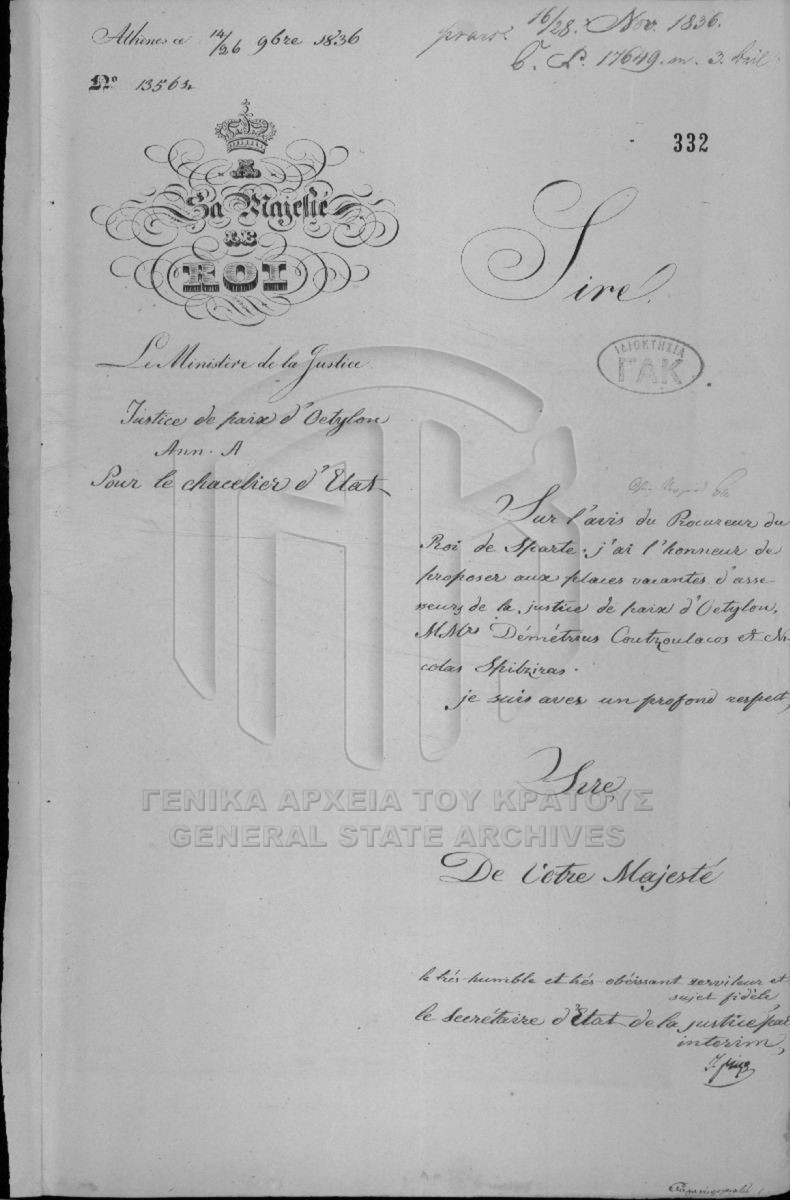 Athènes ce 14/26 9bre 1836
16/28. Nov. 1836.
Nº 13564
332
A
Sa Majesté
LE
ROI
Sire,
ΙΔΙΟΚΤΗΣΙΑ
ΓΑΚ
Le Ministère de la Justice
Justice de paix d'Oetylon
Ann. A
Pour le chacelier d'Etat
Sur l'avis du Procureur du
Roi de Sparte, j'ai l'honneur de
proposer aux places vacantes d'asse-
seurs de la justice de paix d'Oetylon,
MMrs Démétrius Coutzoulacos et Ni-
colas Spitziras.
je suis avec un profond respect,
Sire,
ΓΕΝΙΚΑ ΑΡΧΕΙΑ ΤΟΥ ΚΡΑΤΟΥΣ
GENERAL STATE ARCHIVES
De Votre Majesté
le très humble et très obéissant serviteur et
sujet fidèle
le secrétaire d'Etat de la justice par
interim,